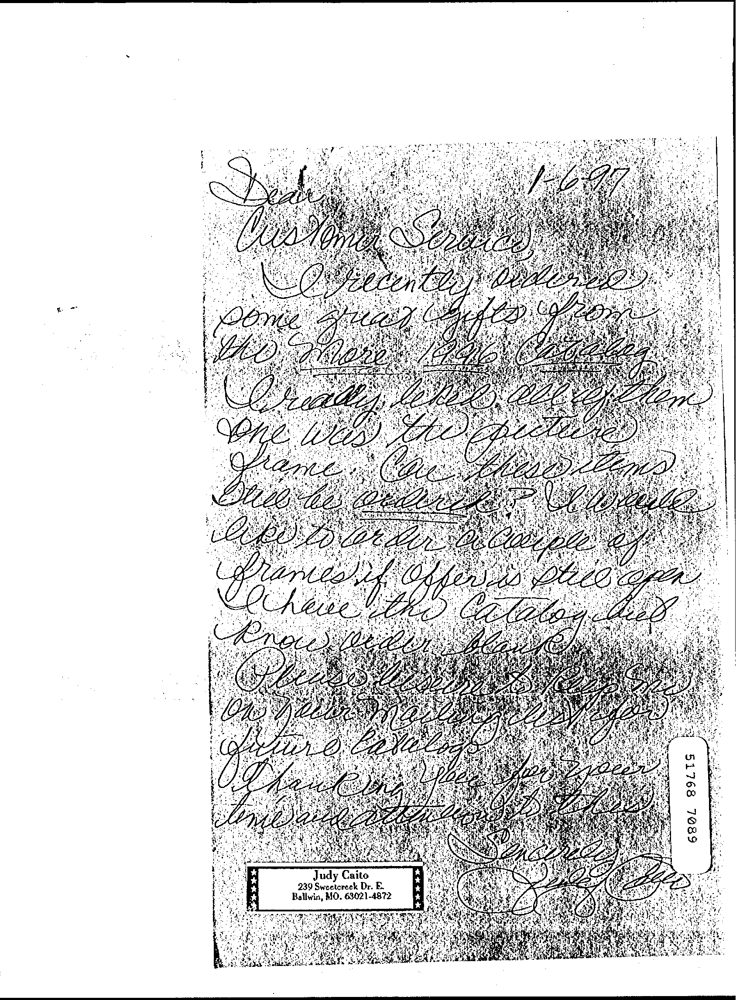 Dear, 1-6-97
Customer Service,
I recently ordered
some great gifts from
the More 1996 Catalog
I really liked all of them
One was the picture
frame. Can these items
still be ordered? I would
like to order a couple of
frames if offer is still open
I have the Catalog but
know order blank
Please to keep me
on your mailing list for
future Catalogs
Thanking you for your
time and attention to this
Sincerely
Judy Caito
Judy Caito
239 Sweetcreek Dr. E.
Ballwin, MO. 63021-4872
51768 7089